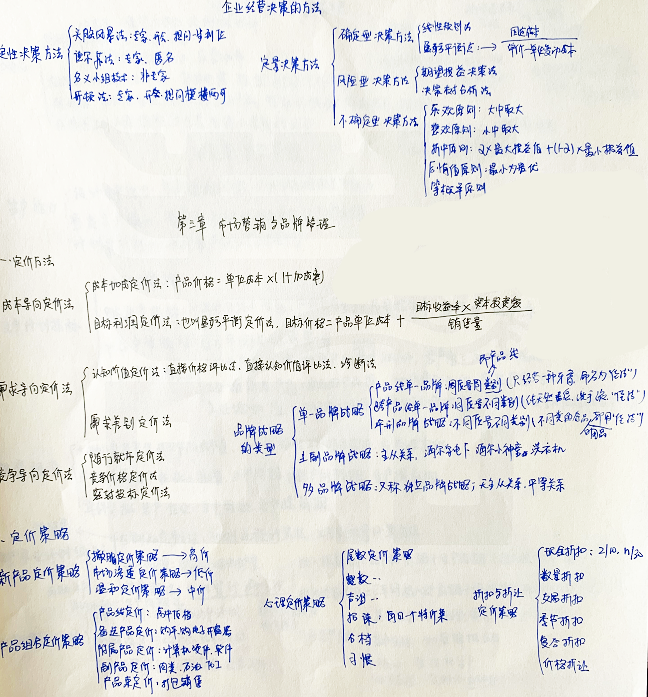 企业经营决策的方法
定性决策方法
头脑风暴法：专家、
德尔菲法：专家、匿名
名义小组技术：非专家
定量决策方法
确定型决策方法
线性规划法
盈亏平衡点：→ 固定成本
单价-单位变动成本
风险型决策方法
期望损益决策法
决策树分析法
不确定型决策方法
乐观原则：大中取大
悲观原则：小中取大
折中原则：α×最大损益值+(1-α)×最小损益值
后悔值原则：最小为最优
等概率原则
第三章 市场营销与品牌管理
一.定价方法
成本导向定价法
成本加成定价法：产品价格=单位成本×(1+加成率)
目标利润定价法：也叫盈亏平衡定价法，目标价格=产品单位成本+
目标收益率×资本投资额
销售量
需求导向定价法
认知价值定价法：直接价格评比法、直接认知价值评比法、诊断法
需求差别定价法
竞争导向定价法
随行就市定价法
竞争价格定价法
密封投标定价法
即产品线
品牌战略的类型
单一品牌战略
产品线单一品牌：同质量同类别
跨产品线单一品牌：同质量不同类别
伞型品牌战略：不同质量不同类别
主副品牌战略：主从关系，海尔冰电下 海尔小神童 洗衣机
多品牌战略：又称独立品牌战略；无主从关系，平等关系
、定价策略
新产品定价策略
撇脂定价策略→高价
市场渗透定价策略→低价
温和定价策略→中价
产品组合定价策略
产品线定价：高中低档
备选产品定价：
附属产品定价：计算机硬件、软件
副产品定价：肉类、石油加工
产品束定价：打包销售
心理定价策略
尾数定价策略
整数··
声望··
招徕：每日一个特价菜
分档
习惯
折扣与折让定价策略
现金折扣：2/10, n/30
数量折扣
交易折扣
季节折扣
复合折扣
价格折让